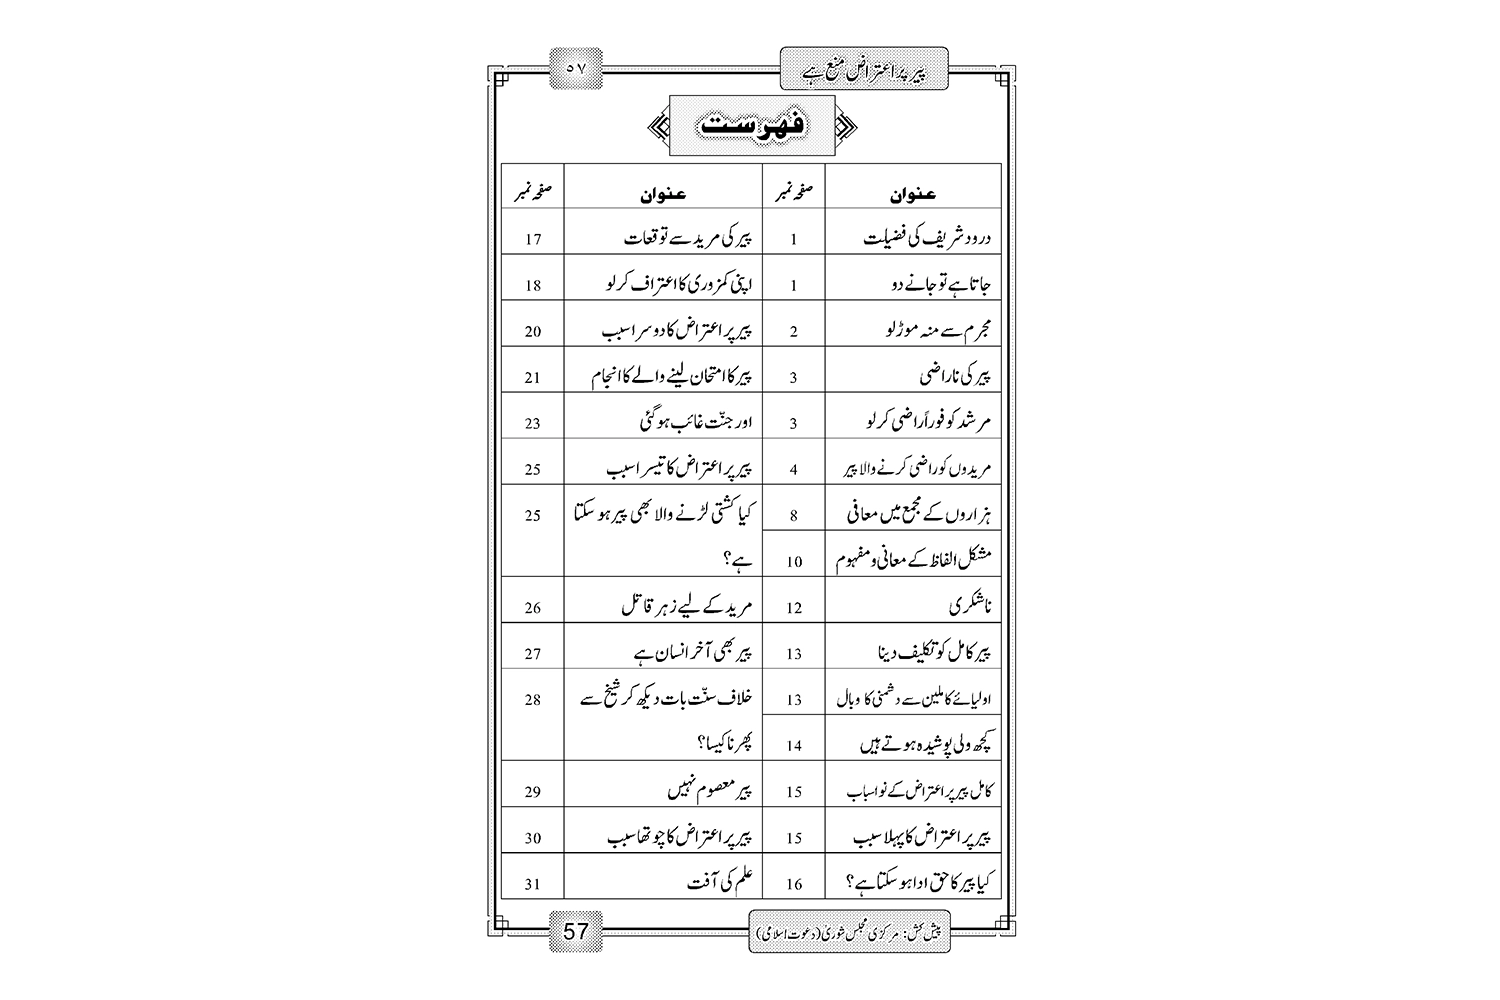 پیر پر اعتراض منع ہے ٥٧
فہرست
عنوان صفحہ نمبر عنوان صفحہ نمبر
درود شریف کی فضیلت 1 پیر کی مرید سے توقعات 17
جاتا ہے تو جانے دو 1 اپنی کمزوری کا اعتراف کر لو 18
مجرم سے منہ موڑ لو 2 پیر پر اعتراض کا دوسرا سبب 20
پیر کی ناراضی 3 پیر کا امتحان لینے والے کا انجام 21
مرشد کو فوراً راضی کر لو 3 اور جنّت غائب ہو گئی 23
مریدوں کو راضی کرنے والا پیر 4 پیر پر اعتراض کا تیسرا سبب 25
ہزاروں کے مجمع میں معافی 8 کیا کشتی لڑنے والا بھی پیر ہو سکتا 25
مشکل الفاظ کے معانی و مفہوم 10 ہے؟
ناشکری 12 مرید کے لیے زہر قاتل 26
پیر کامل کو تکلیف دینا 13 پیر بھی آخر انسان ہے 27
اولیائے کاملین سے دشمنی کا وبال 13 خلاف سنّت بات دیکھ کر شیخ سے 28
کچھ ولی پوشیدہ ہوتے ہیں 14 پھرنا کیسا؟
کامل پیر پر اعتراض کے نو اسباب 15 پیر معصوم نہیں 29
پیر پر اعتراض کا پہلا سبب 15 پیر پر اعتراض کا چوتھا سبب 30
کیا پیر کا حق ادا ہو سکتا ہے؟ 16 علم کی آفت 31
پیش کش: مرکزی مجلس شوریٰ (دعوت اسلامی) 57